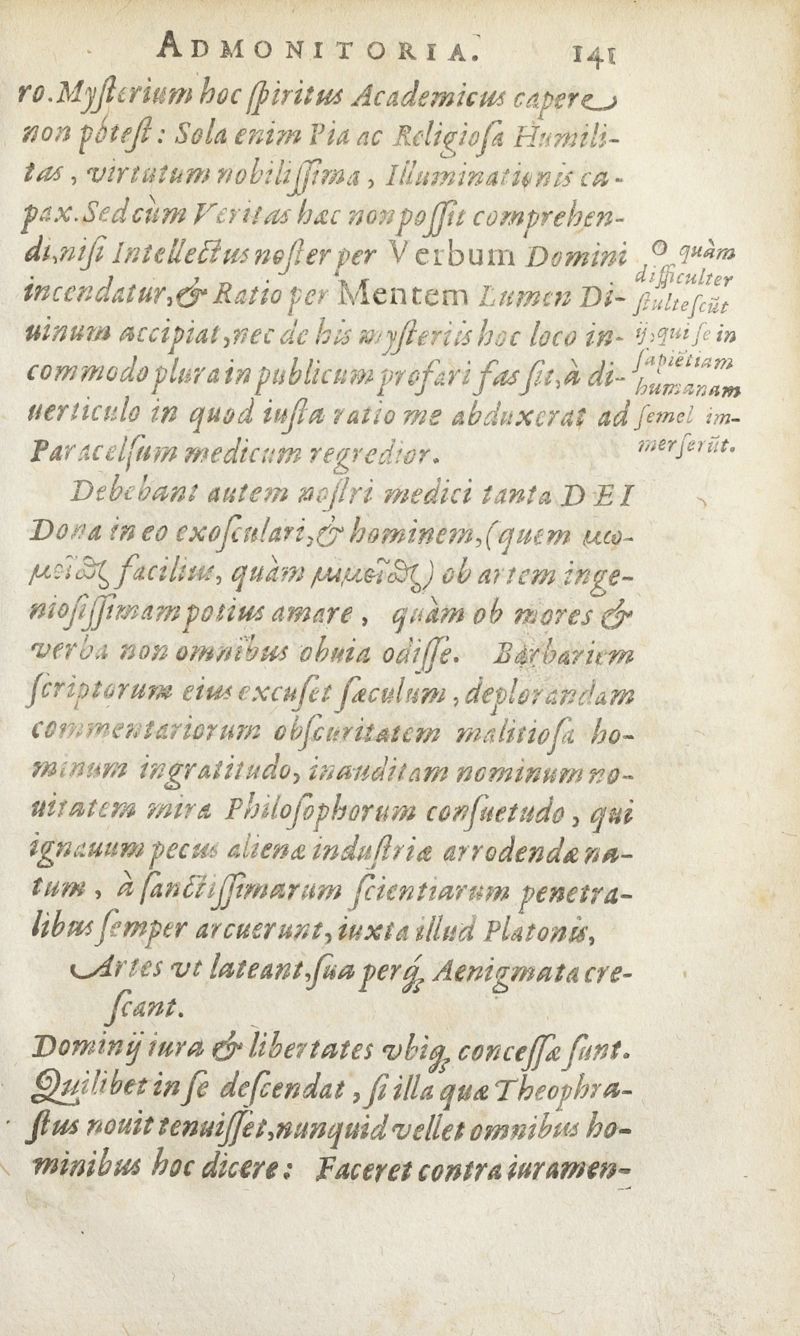 ADMONITORIA. 141
ro. Myſterium hoc ſpiritus Academicus capere
non poteſt: Sola enim Pia ac Religioſa Humili-
tas, virtutum nobiliſſima, Illuminationis ca-
pax. Sed cùm Veritas hæc non poſſit comprehen-
di, niſi Intellectus noſter per Verbum Domini
incendatur, & Ratio per Mentem Lumen Di-
uinum accipiat, nec de his myſteriis hoc loco in-
commodo plura in publicum profari fas ſit, à di-
uerticulo in quod iuſta ratio me abduxerat ad
Paracelſum medicum regredior.
O quàm
difficulter
ſtulteſcūt
ij, qui ſe in
ſapiētiam
humanam
ſemel im-
merſerūt.
Debebant autem noſtri medici tanta DEI
Dona in eo exoſculari, & hominem, (quem μω-
μεῖσθαι facilius, quàm μιμεῖσθαι) ob artem inge-
nioſiſſimam potius amare, quàm ob mores &
verba non omnibus obuia odiſſe. Barbariem
ſcriptorum eius excuſet ſæculum, deplorandam
commentariorum obſcuritatem malitioſa ho-
minum ingratitudo, inauditam nominum no-
uitatem mira Philoſophorum conſuetudo, qui
ignauum pecus alienæ induſtriæ arrodendæ na-
tum, à ſanctiſſimarum ſcientiarum penetra-
libus ſemper arcuerunt, iuxta illud Platonis,
Artes vt lateant, ſua perq́; Aenigmata cre-
ſcant.
Dominij iura & libertates vbiq; conceſſæ ſunt.
Quilibet in ſe deſcendat, ſi illa quæ Theophra-
ſtus nouit tenuiſſet, nunquid vellet omnibus ho-
minibus hoc dicere: Faceret contra iuramen-